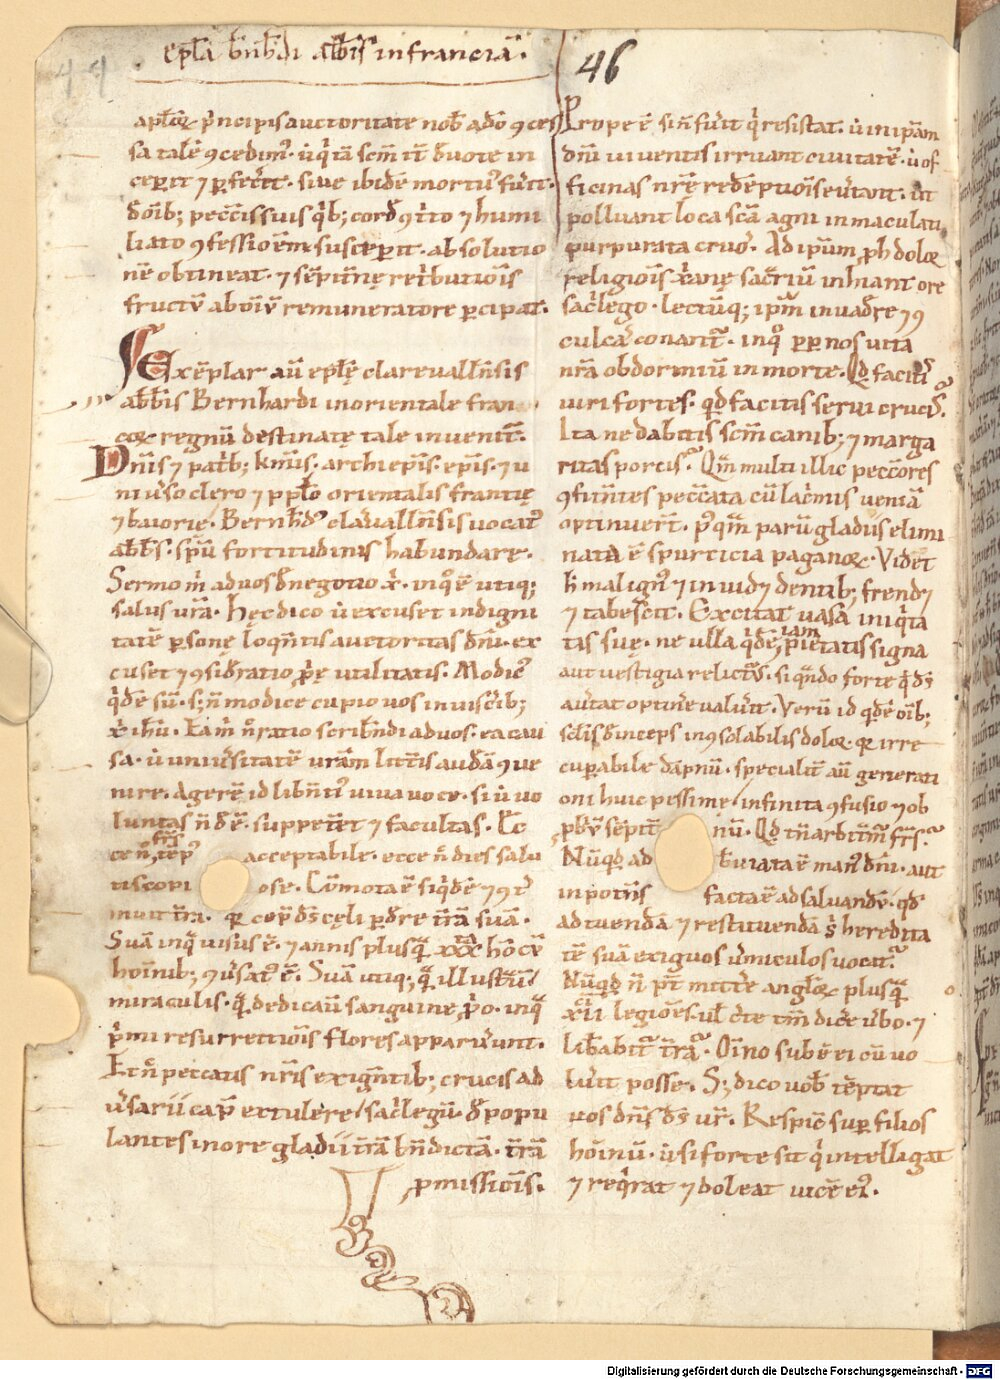 epl̄a b̄nh̄di abb̄is in franciā.
46
44
apl̄oꝝ p̾ncipis auctoritate nob̄ a dō ꝯces
sa talē ꝯcedim᷒. ut q̇ iṫ scm̄ it̄ deuote in
cep̄it ⁊ ꝑfec̄it. siue ibidē mortu᷒ fuīt.
de oīb; pecc̄is suis q̇b; corde ꝯt̾to ⁊ humi
liato ꝯfessionē suscep̄it. absolutio
nē obtineat. ⁊ sēpit̄nę ret̾butiōis
fructū ab oīū remuneratore ꝑcipiat.
Exēplar aū epl̄ę clareuallēsis
abb̄is Bernhardi in orientale fran
coꝝ regnū destinatę tale inuenit᷑.
Dn̄is ⁊ patib; kmīs. archiep̄is. ep̄is. ⁊ u
niuso clero ⁊ ppl̄o orientalis frantię
⁊ baiorię. Bernh̄d᷒ clāuallēsis uocat᷒
abb̄s. sp̄ū fortitudinis habundare.
Sermo m̄ ad uos de negotio x̄. in quo ē utiq;
salus ura. Hęc dico ut excuset indigni
tatē ꝑsonę loqn̄tis auctoritas dn̄i. ex
cuset ⁊ ꝯsideratio ꝓprię utilitatis. Modic᷒
q̇dē sū. s; n̄ modice cupio uos in uiscib;
x̄ ih̄u. Ea m̄ n̄ ratio scribn̄di ad uos. ea cau
sa. ut uniusitatē uram litt̄is audeā ꝯue
nire. Agerē id libn̄ti᷒ uiua uoce. si ut uo
luntas n̄ deē. suppetet ⁊ facultas. Ec
ce nc̄ frs̄ tēp᷒ acceptabile. ecce nc̄ dies salu
tis copiose. Cōmota ē siq̇dē ⁊ ꝯt̾
muit tr̄a. qr̄ cep̄ ds̄ cęli ꝑdere tr̄ā suā.
Suā inquā uisus ē. ⁊ annis plusquā xxx hō cū
hoīnib; ꝯusat᷒ ē. Suā utiq; quā illustrauit
miraculis. quā dedicauit sanguine ꝓprio. in qua
p̾mi resurrectiōis flores apparuunt.
Et nc̄ peccatis nr̄is exign̄tib; crucis ad
usarii cap̄ extulere sacilegū. depopu
lantes in ore gladii tr̄ā bn̄dictā. tr̄ā
ꝓmissiōis.
Prope ē si n̄ fuīt q̇ resistat. ut in ip̄am
dī uiuentis irruant ciuitatē. ut of
ficinas nr̄ę redēptiōis eutant. ut
polluant loca scā agni inmaculati
purpurata cruore. Ad ip̄um ꝓh dolor
religiōis x̄anę sac̄riū inhiant ore
sacilego. lectūq; ip̄m inuadere ⁊ ꝯ
culcare conant᷑. in quo ꝓpt̄ nos uita
nr̄a obdormiuit in morte. Qd facitis
uiri fortes. qd facitis serui crucis.
Ita ne dabitis scm̄ canib; ⁊ marga
ritas porcis. Qm̄ multi illic pecc̄ores
ꝯfitentes peccata cū lac̄mis ueniā
optinuert. p᷒quam patrū gladiis elimi
nata ē spurcicia paganoꝝ. Videt
h̄ malign᷒ ⁊ inuidet. dentib; frendet
⁊ tabescit. Excitat uasa iniq̇ta
tis suę. ne ulla q̇dē iam pietatis signa
aut uestigia relictur᷒. si quando forte q̇d ds̄
auertat optinere ualuīt. Verū id quidē oīb;
sclīs deinceps incꝯsolabilis dolor. qr̄ irre
cuꝑabile dāpnū. specialit̄ aū generati
oni huic pessime infinita ꝯfusio ⁊ ob
ꝓbriū sēpit̄nū. Qd tn̄ arbitramur frs̄.
Nūquid adbreuiata ē man᷒ dn̄i. aut
inpotens facta ē ad saluandū. qd
ad tuendā ⁊ restituendā s̾ heredita
tē suā exiguos uermiculos uocat.
Nūquid n̄ pt̄ mittere angloꝝ plusquā
xii legiones. ul̄ certe tm̄ dicere ubo. ⁊
libabit᷑ tr̄a. Oīno subē ei cū uo
luīt posse. S; dico uob̄ tēptat
uos dn̄s ds̄ ur̄. Respic̄ suꝑ filios
hōinū. ut si forte sit q̇ intelligat
⁊ req̇rat ⁊ doleat uicē ei᷒.
Digitalisierung gefördert durch die Deutsche Forschungsgemeinschaft - DFG